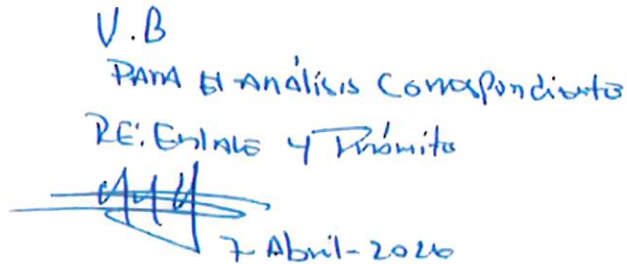 V.B
PARA El Análisis Correspondiente
RE: Enlace y Trámite
7-Abril-2026